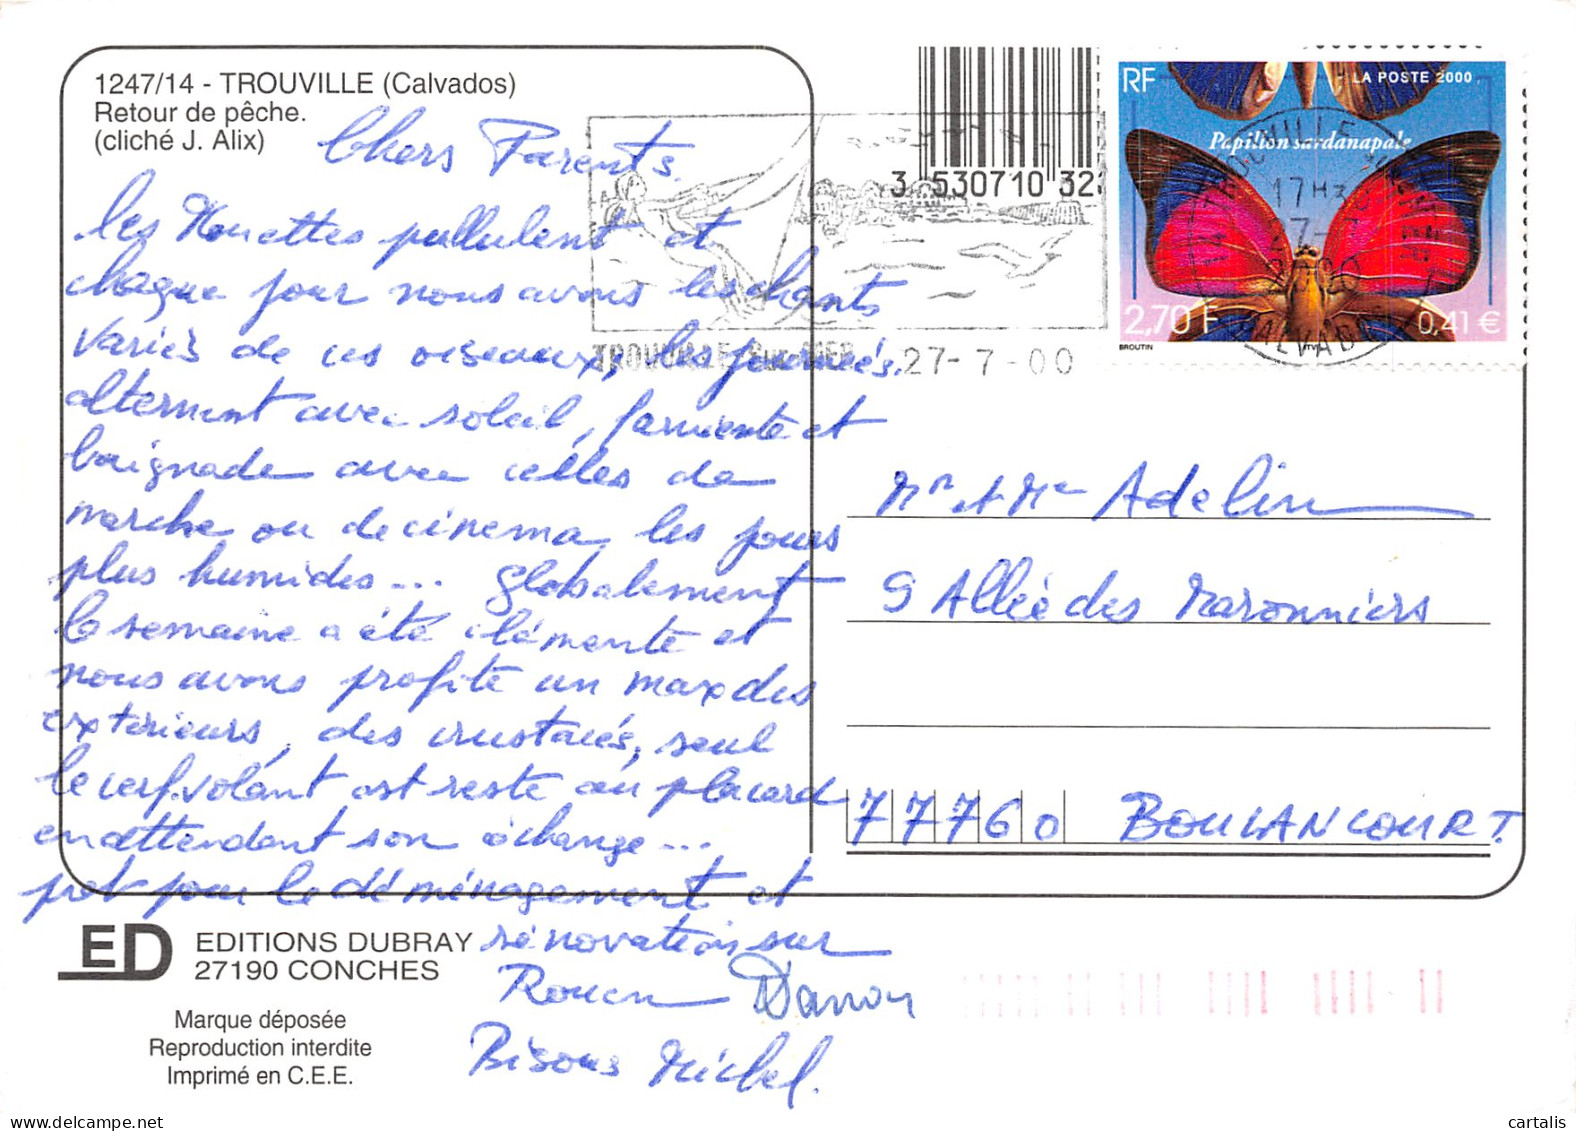 1247/14 - TROUVILLE (Calvados)
Retour de pêche.
(cliché J. Alix)
Chers Parents.
les Mouettes pullulent et
chaque jour nous avons les chants
variés de ces oiseaux, les journées
alternent avec soleil, farniente et
baignade avec celles de
marche ou de cinema, les jours
plus humides... Globalement
la semaine a été clémente et
nous avons profité un max des
extérieurs, des crustacés, seul
le cerf.volant est resté au placard
en attendant son échange...
pret pour le déménagement et
rénovation sur
Rouen
Bisous Michel.
ED EDITIONS DUBRAY
27190 CONCHES
Marque déposée
Reproduction interdite
Imprimé en C.E.E.
3 530710 32
TROUVILLE SUR MER
27-7-00
RF
LA POSTE 2000
Papillon sardanapale
17H3
2,70 F
0,41 €
BROUTIN
CALVADOS
Mr et Me Adeline
9 Allée des Maronniers
77760 BOULANCOURT.
cartalis
delcampe.net